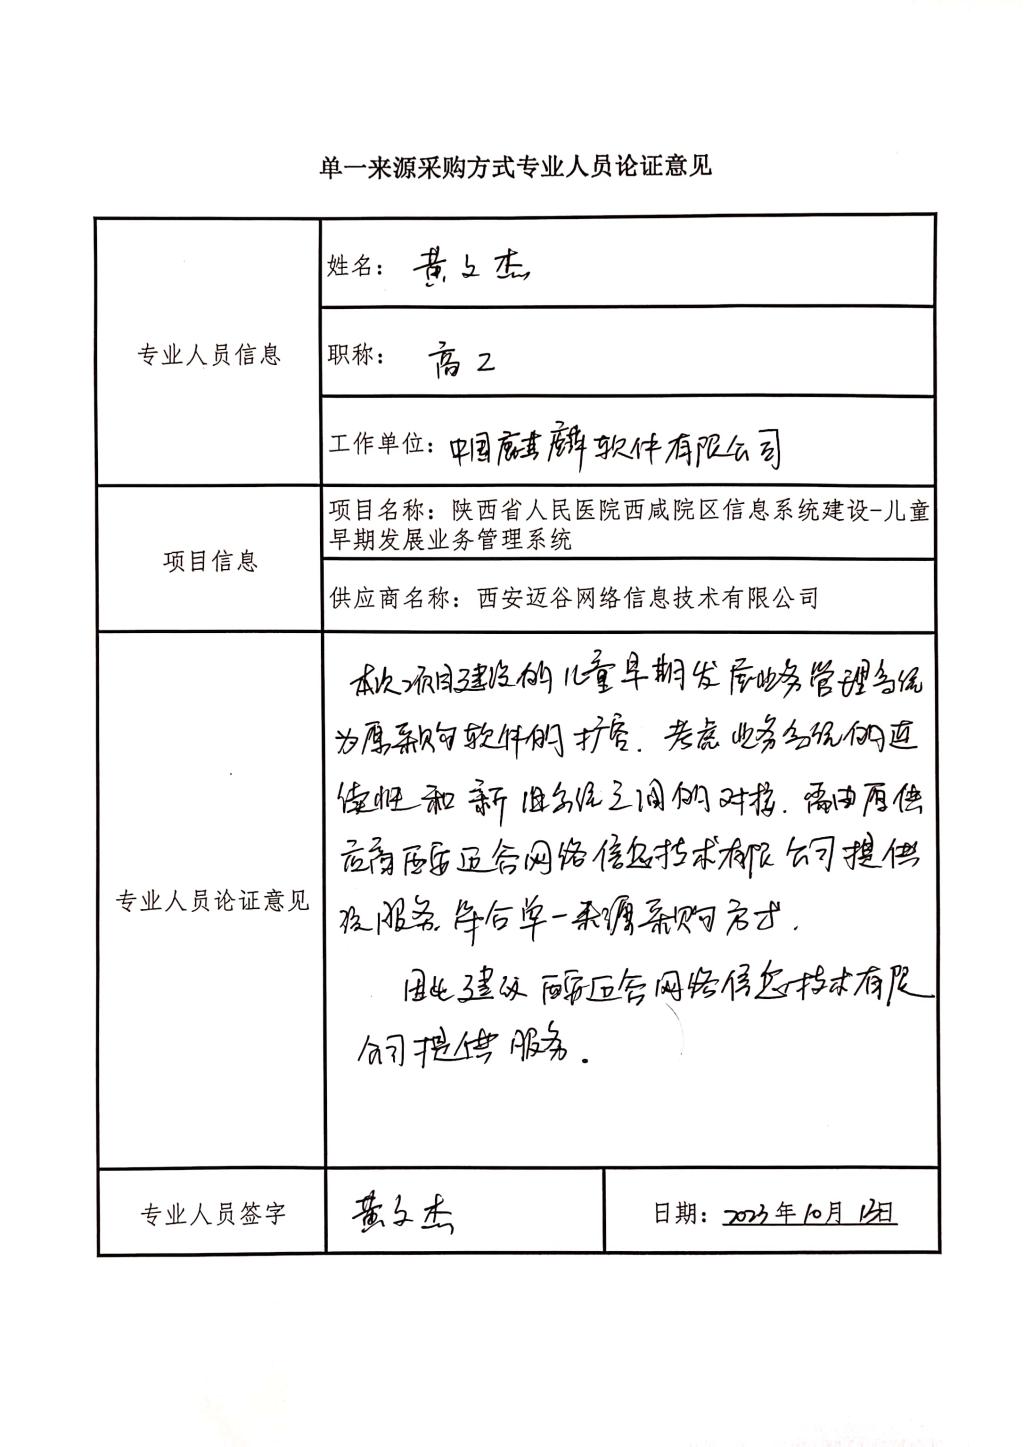 单一来源采购方式专业人员论证意见
专业人员信息
姓名：黄文杰
职称：高工
工作单位：中国麒麟软件有限公司
项目信息
项目名称：陕西省人民医院西咸院区信息系统建设-儿童
早期发展业务管理系统
供应商名称：西安迈谷网络信息技术有限公司
专业人员论证意见
本次项目建设的儿童早期发展业务管理系统
为原采购软件的扩容.考虑业务系统的连
续性和新旧系统之间的对接.需由原供
应商西安迈谷网络信息技术有限公司提供
该服务.符合单一来源采购方式.
因此建议西安迈谷网络信息技术有限
公司提供服务.
专业人员签字
黄文杰
日期：2023年10月13日